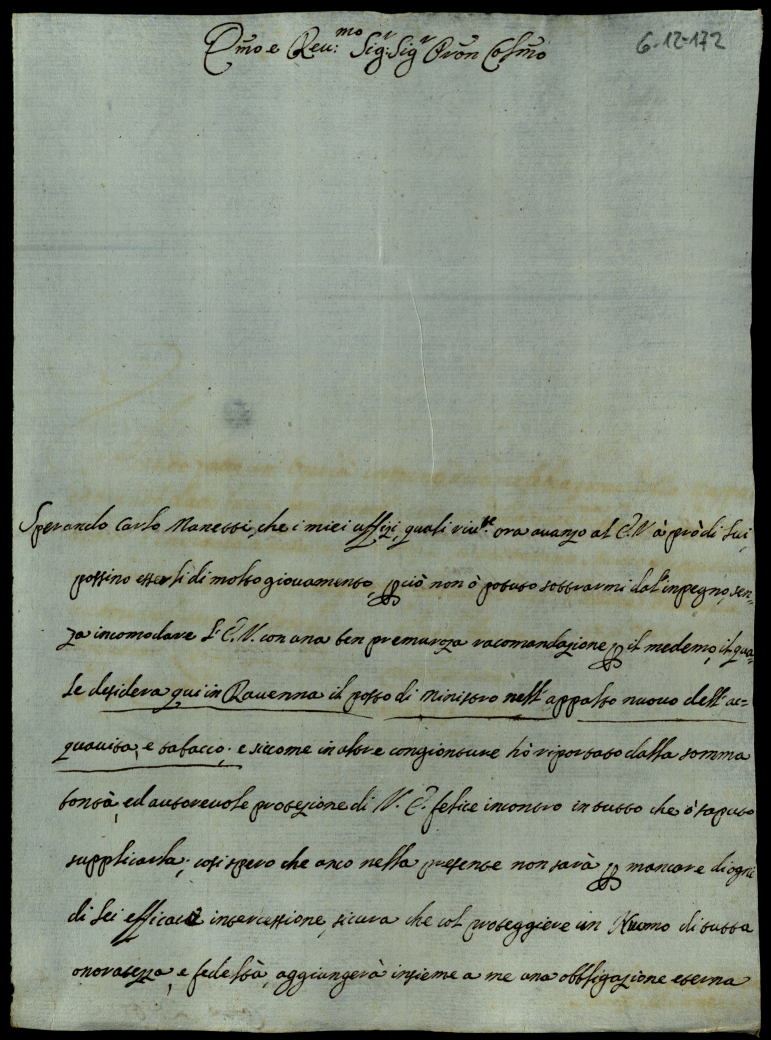 Emo e Reu:mo Sigr: Sigr Pron Colmo
6-12-172
Sperando Carlo Manessi, che i miei uffizi, quali riu.te ora auanzo al E.V. à prò di lui,
possino esserli di molto giouamento, p ciò non ò potuto sottrarmi dal'inpegno, sen-
za incomodare l'E.V. con una ben premuroza racomandazione p il medemo, il qua-
le desidera qui in Rauenna il posto di ministro nell'appalto nuouo dell'ac-
quauita, e tabacco; e siccome in altre congionture hò riportato dalla somma
bontà, ed autoreuole protezione di V. E. felice incontro in tutto che ò saputo
supplicarla; cosi spero che anco nella presente non sarà p mancare di ogni
di lei efficace intercessione, sicura che col proteggere un Huomo di tutta
onoratezza, e fedeltà, aggiungerà insieme a me una obbligazione eterna